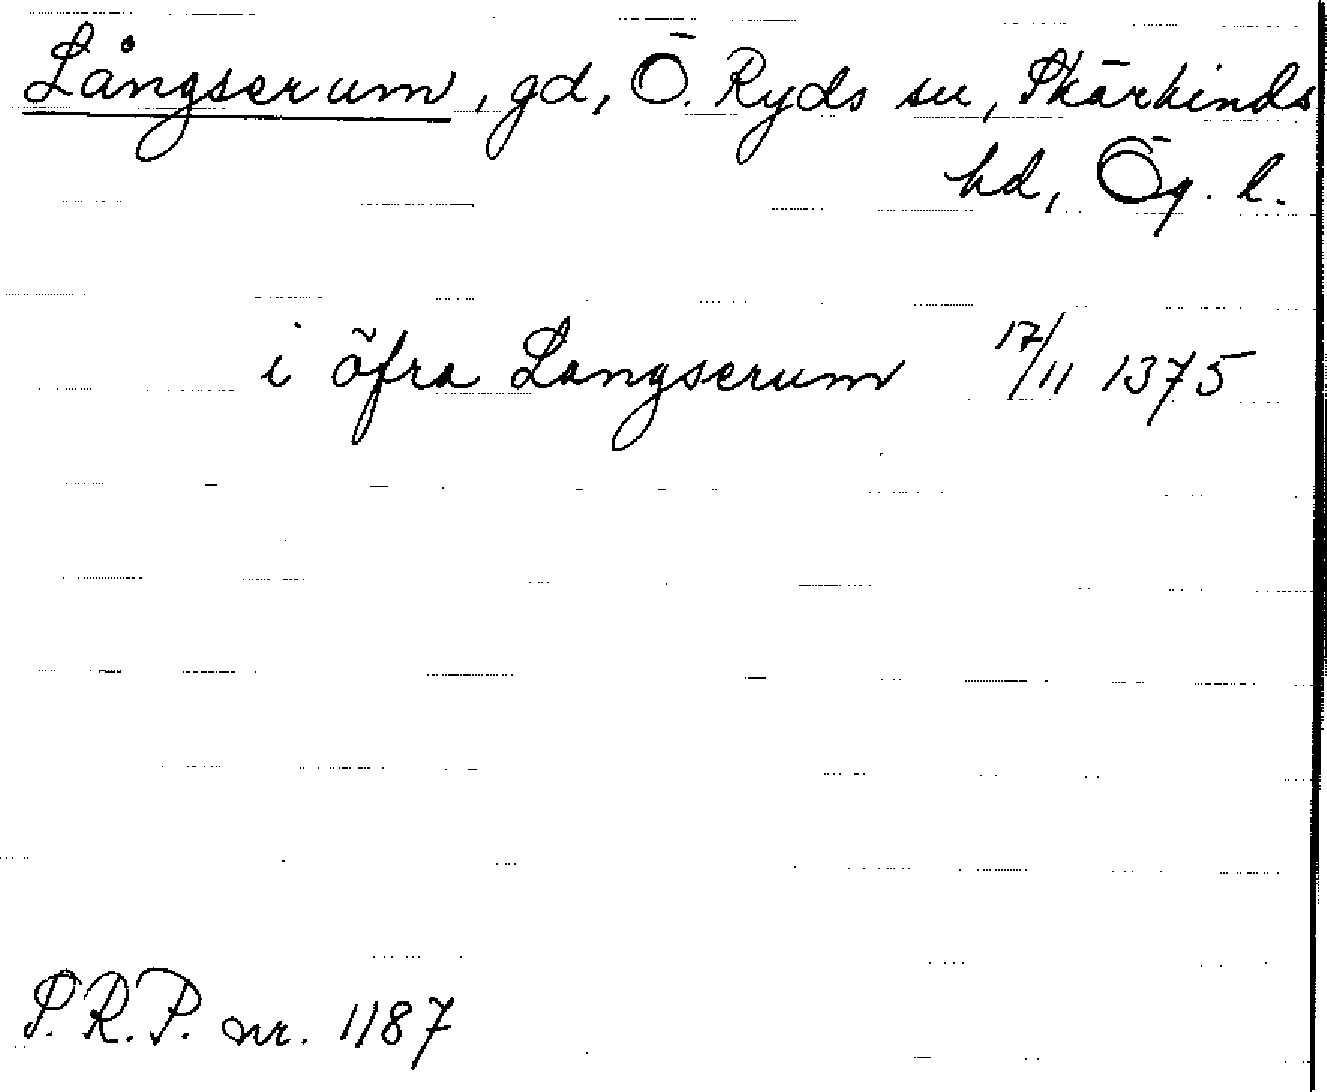 Långserum, gd, Ö. Ryds sn, Skärkinds
hd, Ög. l.
i öfra Langserum 17/11 1375
S.R.P. nr. 1187